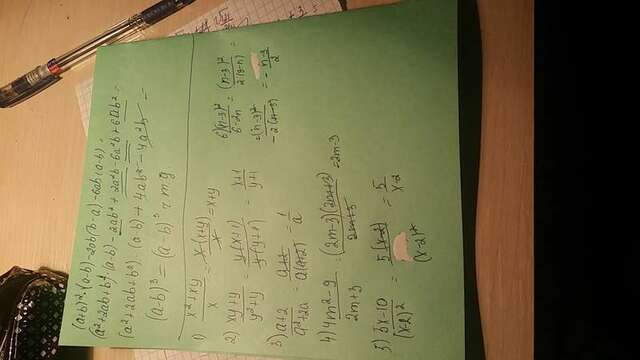 (a+b)²·(a-b)-2ab(b-a)-6ab(a-b)=
(a²+2ab+b²)·(a-b)-2ab²+2a²b-6a²b+6ab²=
(a²+2ab+b²)·(a-b)+4ab²-4a²b=
(a-b)³=(a-b)³ т.т.д
1) x²+xy/x = x·(x+y)/x = x+y
2) xy+y/y²+y = y(x+1)/y(y+1) = x+1/y+1
3) a+2/a²+2a = a+2/a(a+2) = 1/a
4) 4m²-9/2m+3 = (2m-3)(2m+3)/2m+3 = 2m-3
5) 5x-10/(x-2)² = 5(x-2)/(x-2)² = 5/x-2
6(n-3)²/6-2n = (n-3)²/2(3-n) =
= (n-3)²/-2(n-3) = - n-3/2